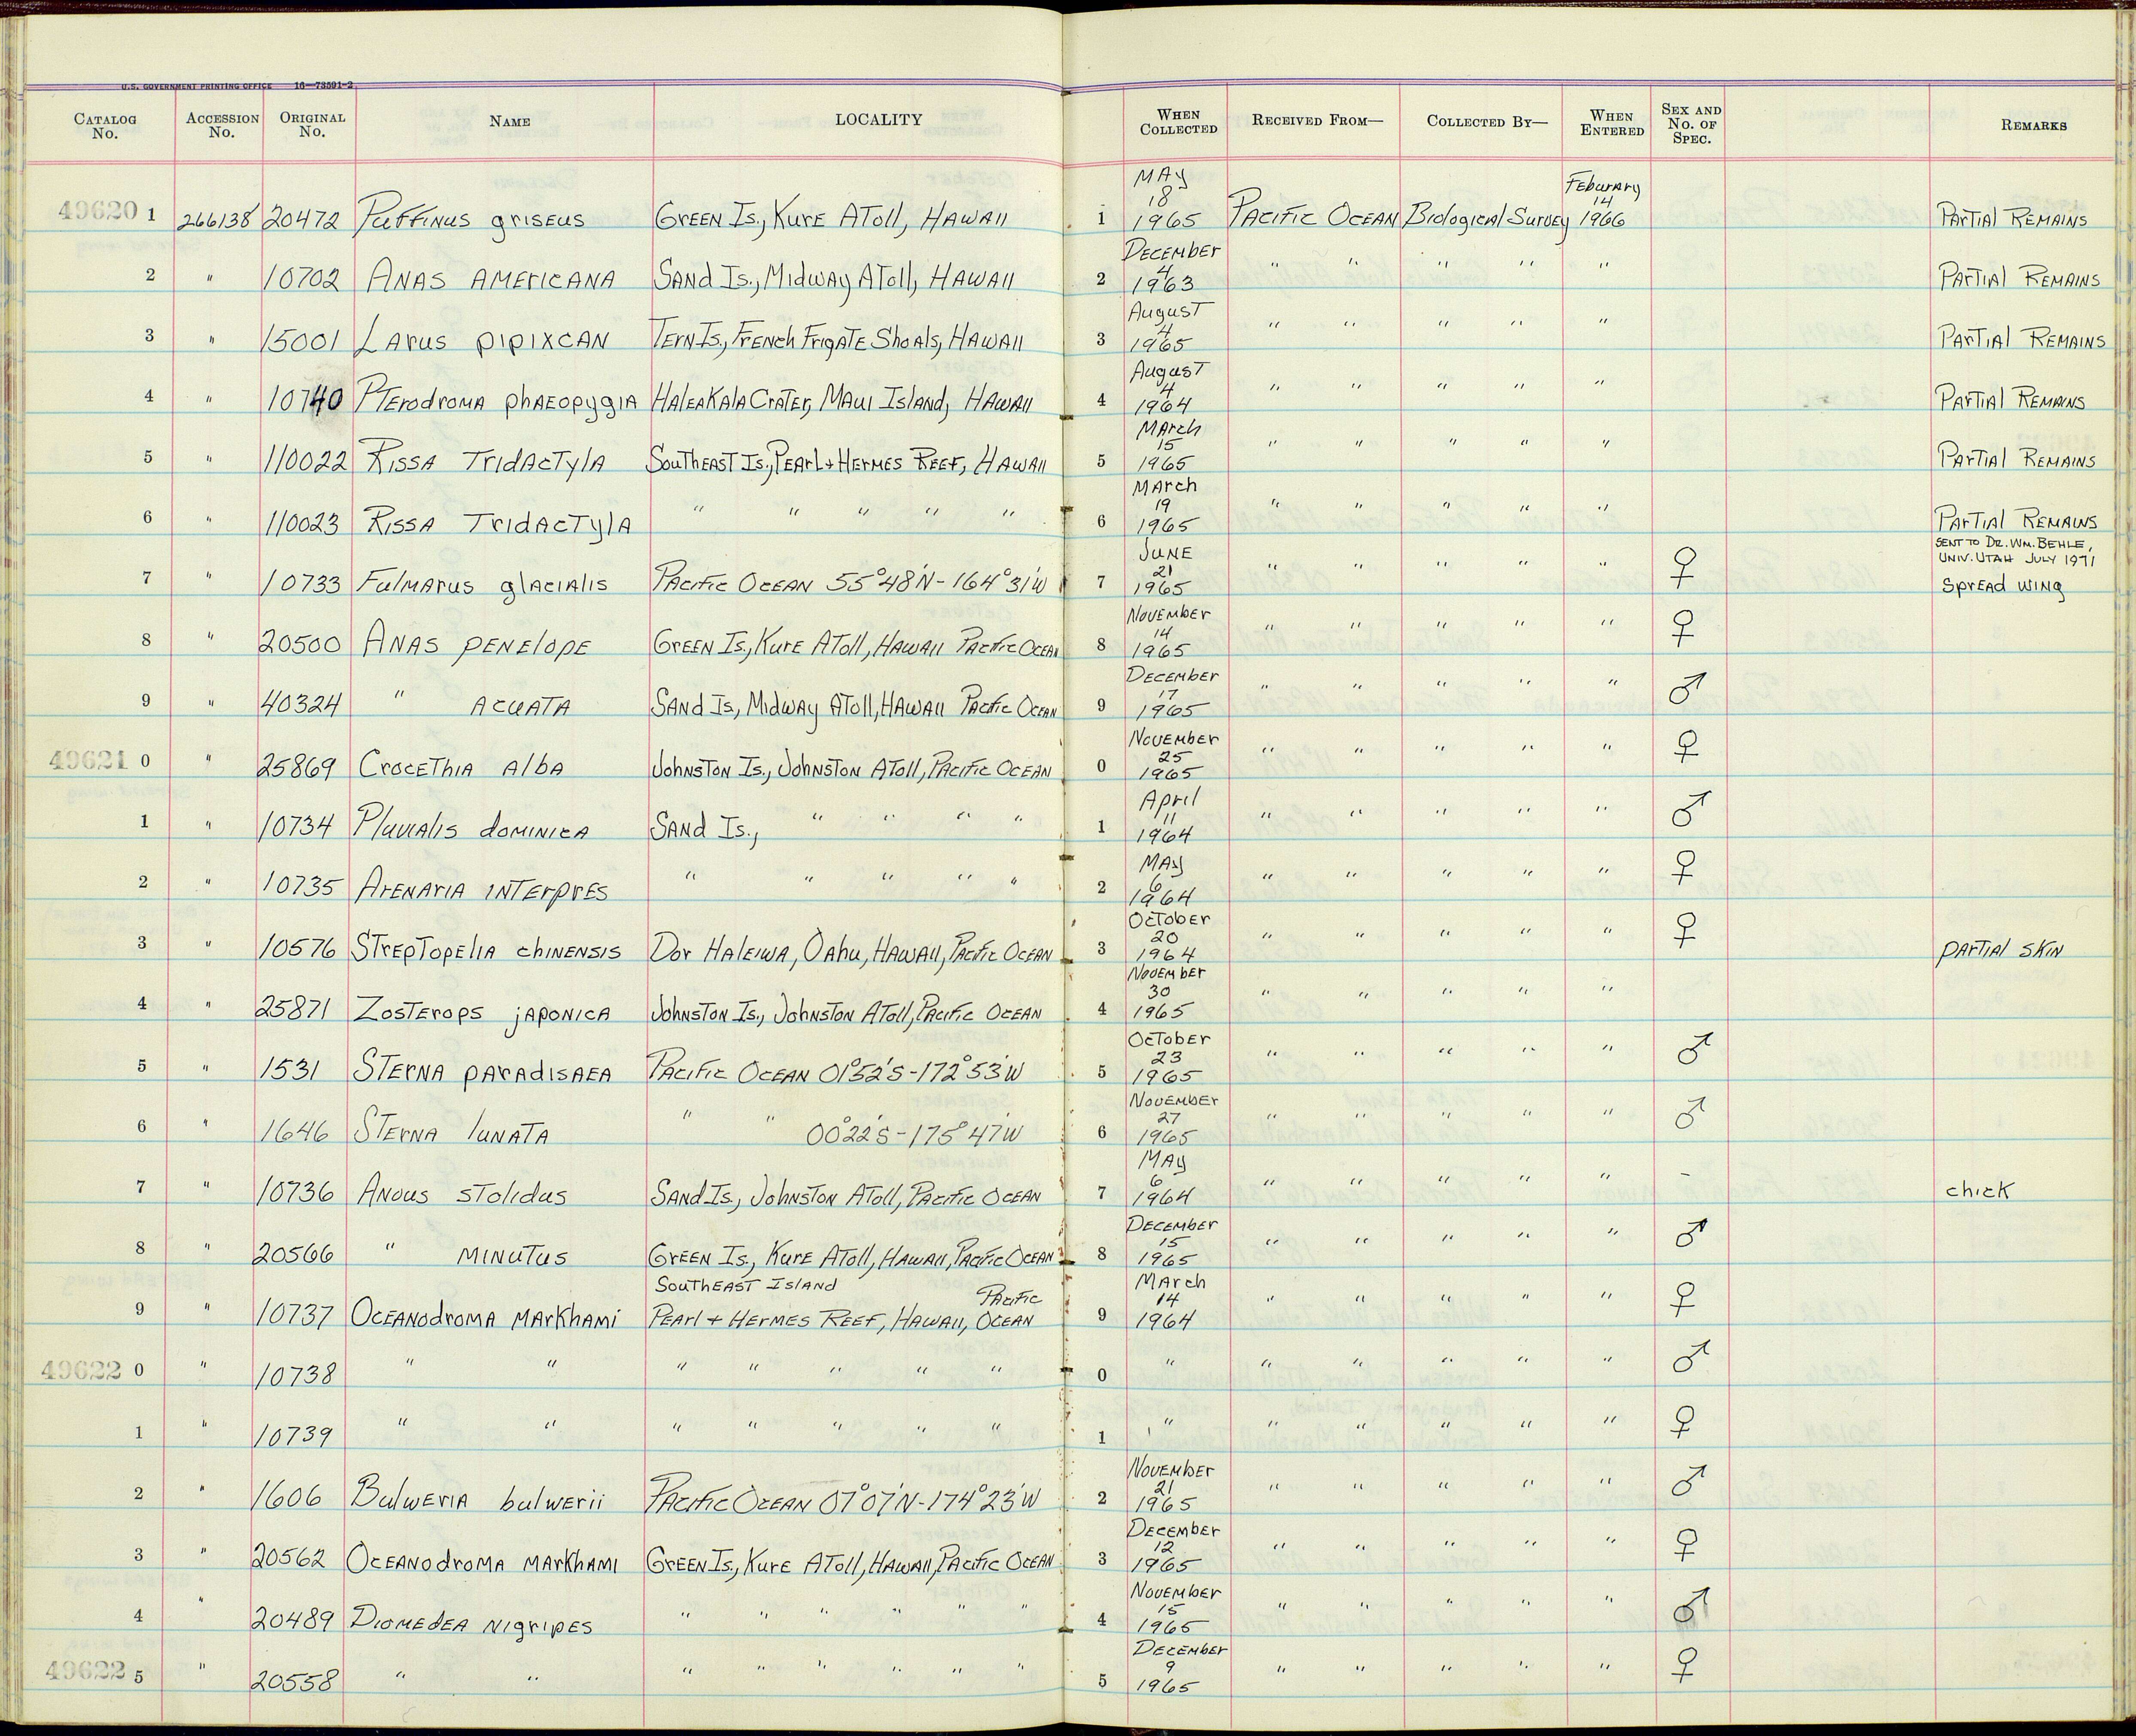 U.S. GOVERNMENT PRINTING OFFICE 16—73591-2
CATALOG No. ACCESSION No. ORIGINAL No. NAME LOCALITY WHEN COLLECTED RECEIVED FROM— COLLECTED BY— WHEN ENTERED SEX AND No. OF SPEC. REMARKS
49620 1 266138 20472 Puffinus griseus Green Is., Kure Atoll, Hawaii 1 May 18 1965 Pacific Ocean Biological Survey Feburary 14 1966 Partial Remains
2 " 10702 Anas americana Sand Is., Midway Atoll, Hawaii 2 December 4 1963 " " " " " Partial Remains
3 " 15001 Larus pipixcan Tern Is., French Frigate Shoals, Hawaii 3 August 4 1965 " " " " " Partial Remains
4 " 10740 Pterodroma phaeopygia Haleakala Crater, Maui Island, Hawaii 4 August 4 1964 " " " " " Partial Remains
5 " 110022 Rissa tridactyla Southeast Is., Pearl + Hermes Reef, Hawaii 5 March 15 1965 " " " " " Partial Remains
6 " 110023 Rissa tridactyla " " " " " 6 March 19 1965 " " " " " Partial Remains
7 " 10733 Fulmarus glacialis Pacific Ocean 55°48'N - 164°31'W 7 June 21 1965 " " " " " ♀ Sent to Dr. Wm. Behle, Univ. Utah July 1971 Spread wing
8 " 20500 Anas penelope Green Is., Kure Atoll, Hawaii Pacific Ocean 8 November 14 1965 " " " " " ♀
9 " 40324 " acuata Sand Is, Midway Atoll, Hawaii Pacific Ocean 9 December 17 1965 " " " " " ♂
49621 0 " 25869 Crocethia alba Johnston Is., Johnston Atoll, Pacific Ocean 0 November 25 1965 " " " " " ♀
1 " 10734 Pluvialis dominica Sand Is., " " " " 1 April 11 1964 " " " " " ♂
2 " 10735 Arenaria interpres " " " " " 2 May 6 1964 " " " " " ♀
3 " 10576 Streptopelia chinensis Dor Haleiwa, Oahu, Hawaii, Pacific Ocean 3 October 20 1964 " " " " " ♀ partial skin
4 " 25871 Zosterops japonica Johnston Is., Johnston Atoll, Pacific Ocean 4 November 30 1965 " " " " "
5 " 1531 Sterna paradisaea Pacific Ocean 01°52'S - 172°53'W 5 October 23 1965 " " " " " ♂
6 " 1646 Sterna lunata " " 00°22'S - 175°47'W 6 November 27 1965 " " " " " ♂
7 " 10736 Anous stolidus Sand Is., Johnston Atoll, Pacific Ocean 7 May 6 1964 " " " " " - chick
8 " 20566 " minutus Green Is., Kure Atoll, Hawaii, Pacific Ocean 8 December 15 1965 " " " " " ♂
9 " 10737 Oceanodroma markhami Southeast Island Pearl + Hermes Reef, Hawaii, Pacific Ocean 9 March 14 1964 " " " " " ♀
49622 0 " 10738 " " " " " " " 0 " " " " " " ♂
1 " 10739 " " " " " " " 1 " " " " " " ♀
2 " 1606 Bulweria bulwerii Pacific Ocean 07°07'N - 174°23'W 2 November 21 1965 " " " " " ♂
3 " 20562 Oceanodroma markhami Green Is., Kure Atoll, Hawaii, Pacific Ocean 3 December 12 1965 " " " " " ♀
4 " 20489 Diomedea nigripes " " " " " " 4 November 15 1965 " " " " " ♂
49622 5 " 20558 " " " " " " " " 5 December 9 1965 " " " " " ♀